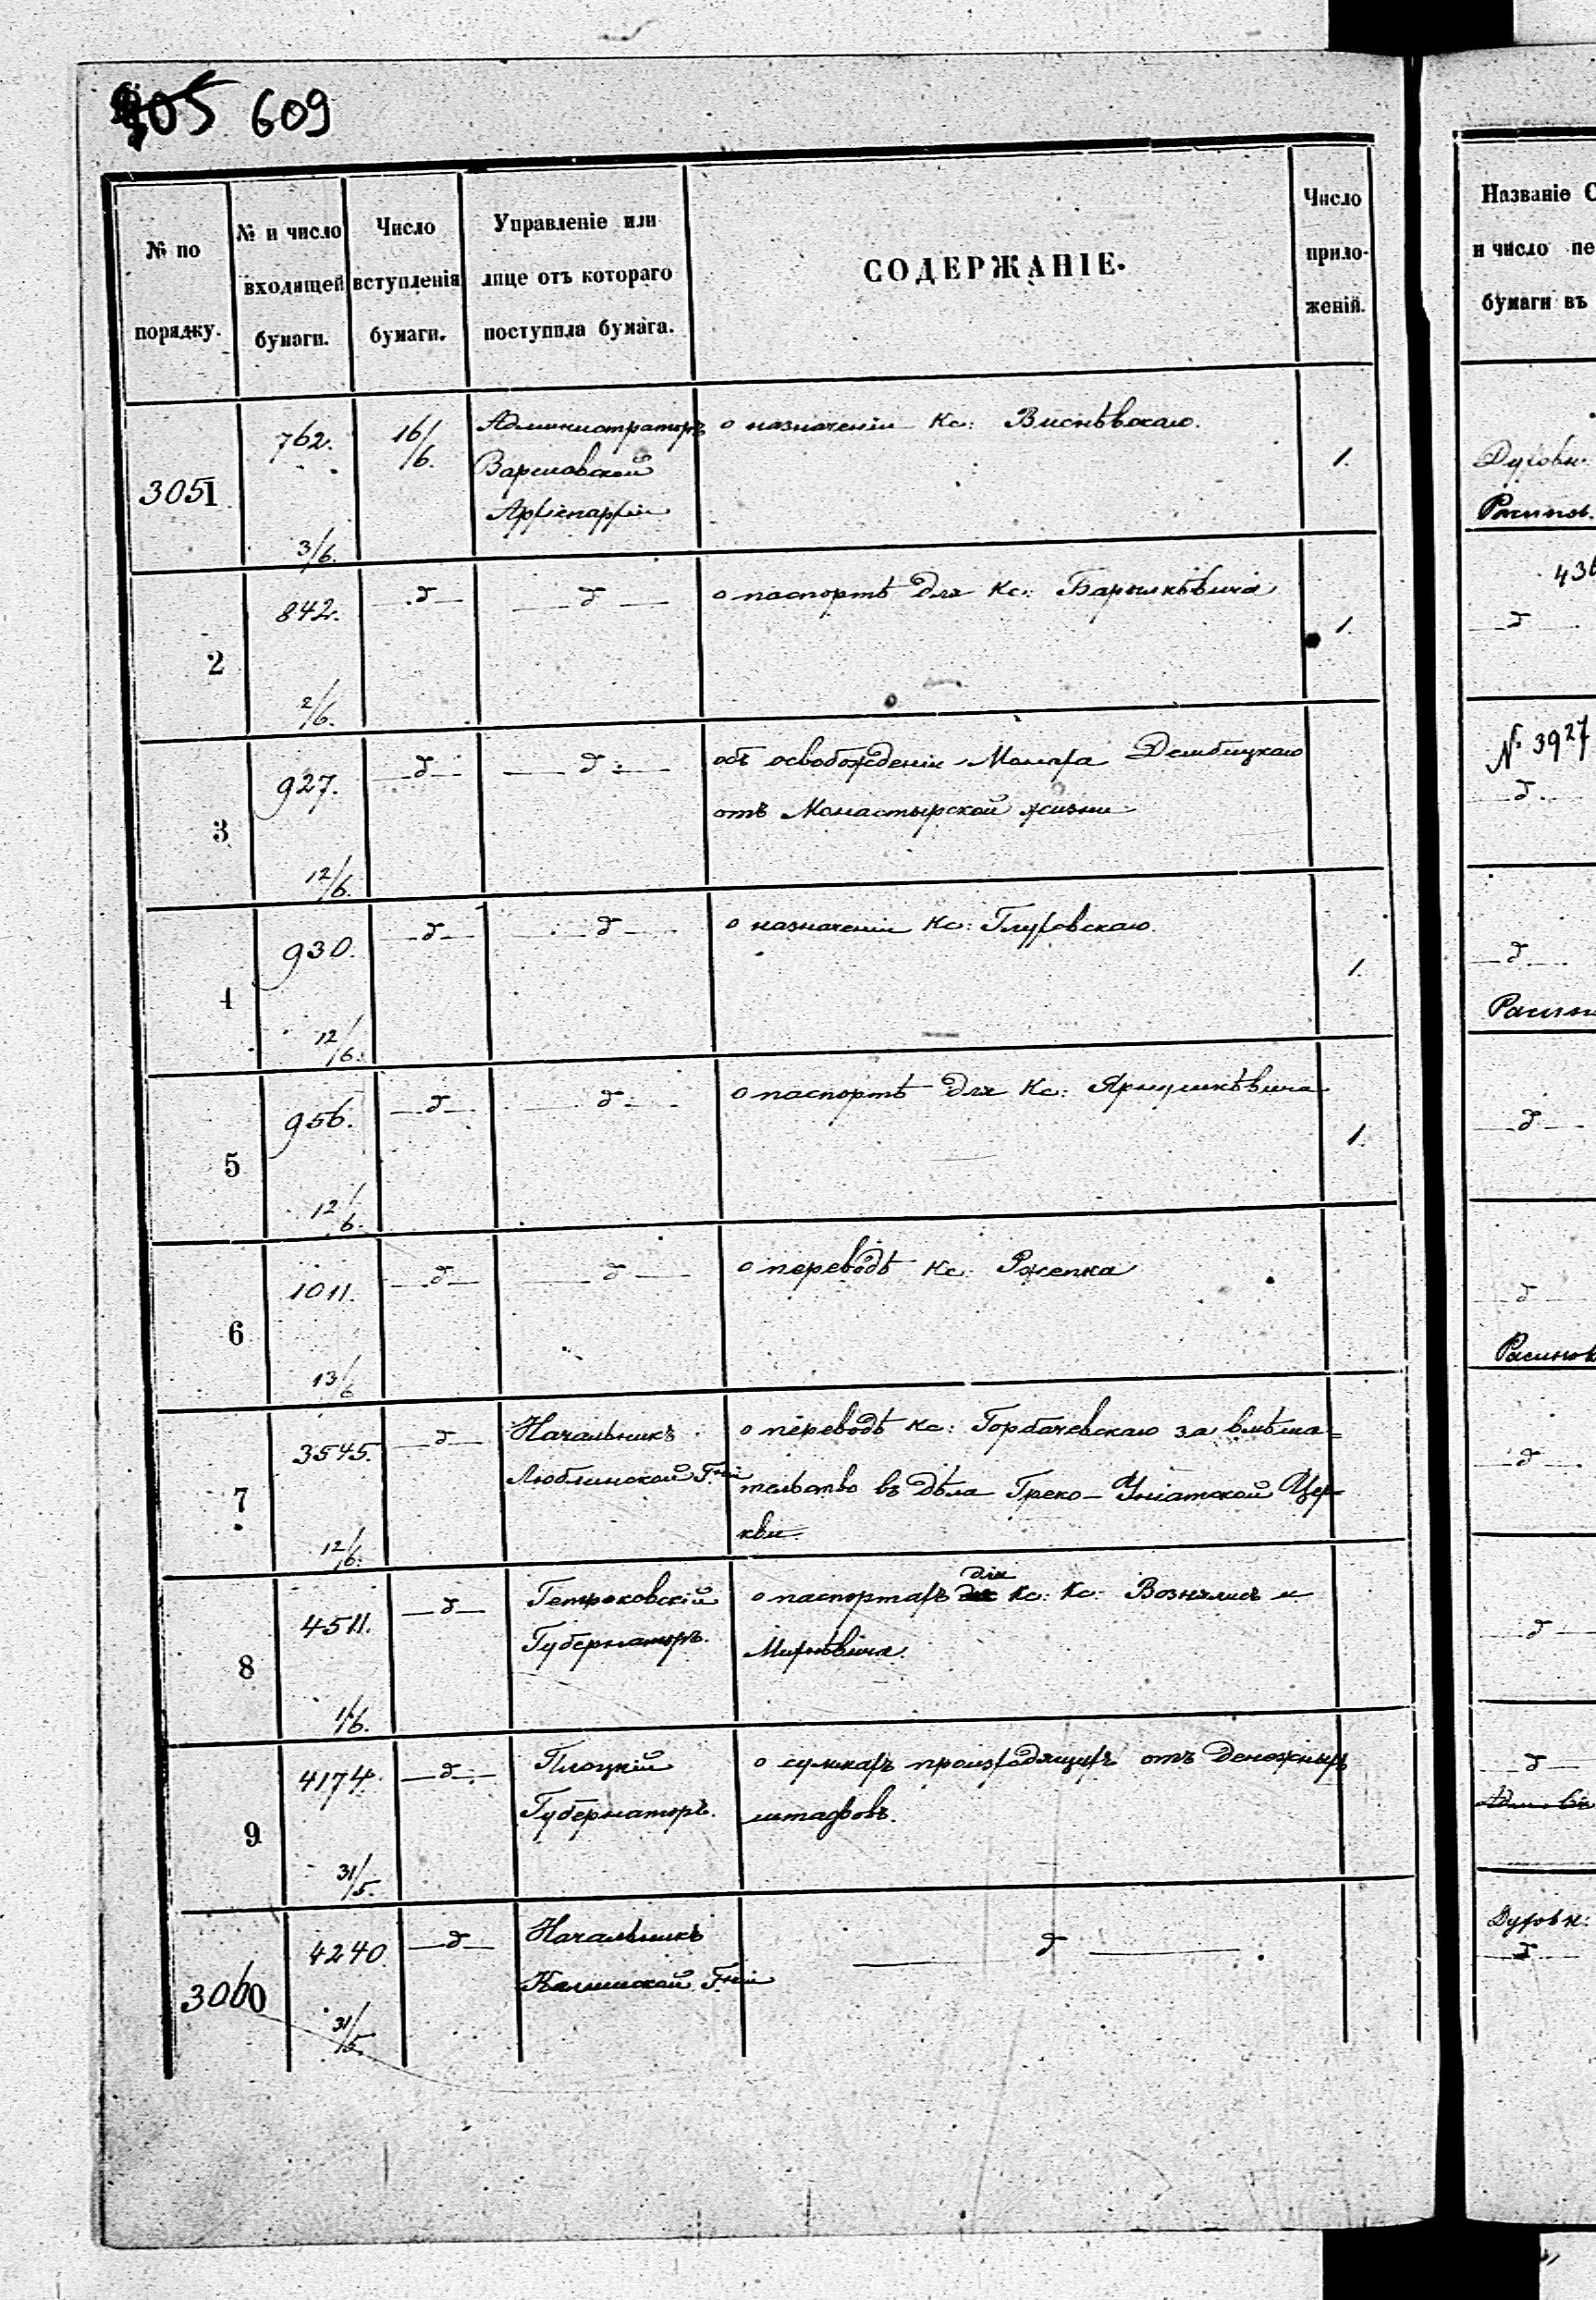 305 609
№ по порядку.
№ и число входящей бумаги.
Число вступленія бумаги.
Управленіе или лице отъ котораго поступила бумага.
СОДЕРЖАНІЕ.
Число приложеній.
3051 762. 3/6. 16/6. Администраторъ о назначеніи Кс: Виснѣвскаго. 1.
Варшавской
Архіепархіи
2 842. 2/6. —д— —д— о паспортѣ для Кс: 1.
3 927. 12/6. —д— —д— объ освобожденіи Монаха Дембицкаго
отъ Монастырской жизни
4 930. 12/6. —д— —д— о назначеніи Кс: Глуховскаго. 1.
5 956. 12/6. —д— —д— о паспортѣ для Кс: 1.
6 1011. 13/6 —д— —д— о переводѣ Кс: Ржепка
7 3545. 12/6. —д— Начальникъ о переводѣ Кс: Горбачевскаго за вмѣша=
Люблинской Г-ніи тельство въ дѣла Греко-Уніатской Цер-
кви.
8 4511. 1/6. —д— Петроковскій о паспортахъ для Кс: Кс: и
Губернаторъ.
9 4174. 31/5. —д— Плоцкій о суммахъ произходящихъ отъ денежныхъ
Губернаторъ. штафовъ.
3060 4240. 31/5. —д— Начальникъ —д—
Калишской Г-ніи
Названіе С
и число пе
бумаги въ
Духовн.
436
—д—
№ 3927
—д—
—д—
—д—
—д—
—д—
—д—
—д—
Духовн:
—д—